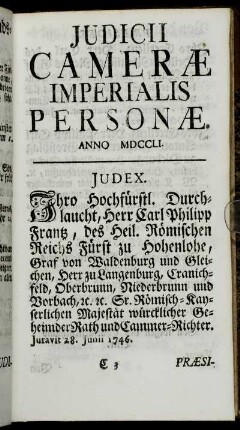 JUDICII
CAMERÆ
IMPERIALIS
PERSONÆ.
ANNO MDCCLI.
JUDEX.
Ihro Hochfürstl. Durch-
laucht, Herr Carl Philipp
Frantz, des Heil. Römischen
Reichs Fürst zu Hohenlohe,
Graf von Waldenburg und Glei-
chen, Herr zu Langenburg, Cranich-
feld, Oberbrunn, Niederbrunn und
Vorbach, ꝛc. ꝛc. Sr. Römisch-Kay-
serlichen Majestät würcklicher Ge-
heimder Rath und Cammer-Richter.
Juravit 28. Junii 1746.
C 3 PRÆSI-